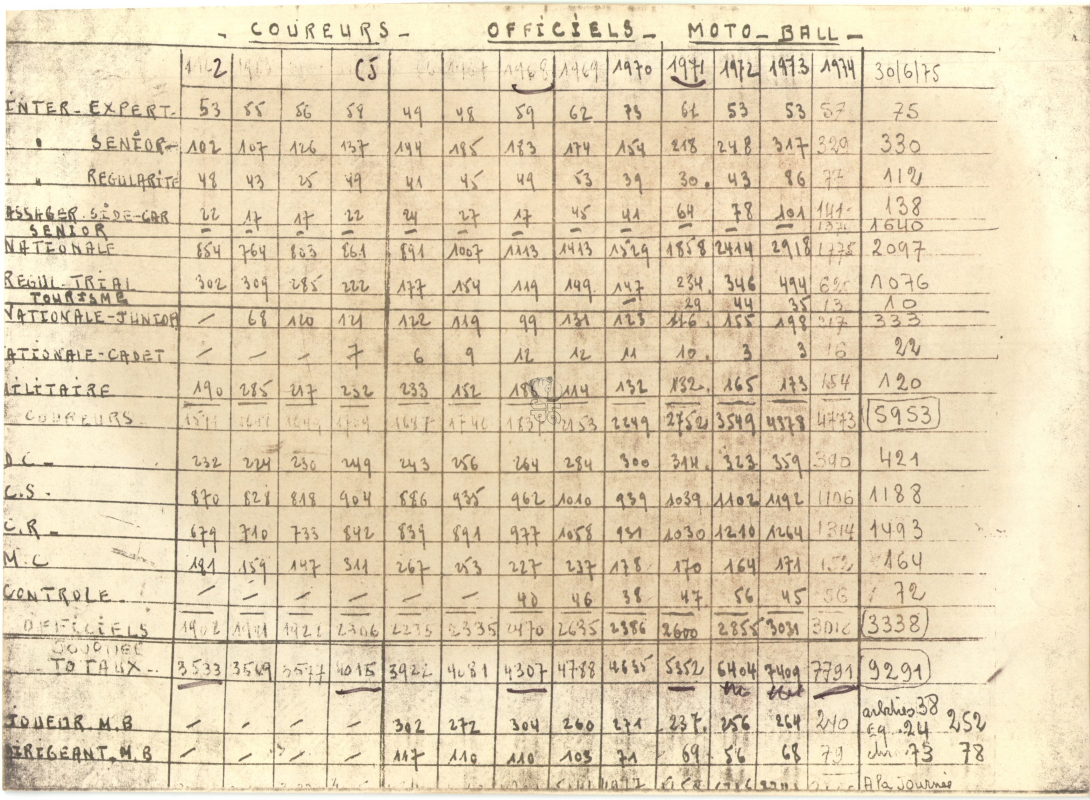 - COUREURS - OFFICIELS - MOTO - BALL -
2 1968 1969 1970 1971 1972 1973 1974 30/6/75
INTER-EXPERT- 53 55 56 58 49 48 59 62 73 61 53 53 57 75
" SENIOR- 102 107 126 137 144 185 183 174 154 218 248 317 329 330
" REGULARITE 48 43 25 49 41 45 49 53 39 30. 43 86 77 112
ASSAGER-SIDE-CAR 22 17 17 22 24 27 17 45 41 64 78 101 141 138
SENIOR 1640
NATIONALE 854 764 803 861 891 1007 1113 1413 1529 1858 2414 2918 1775 2097
REGUL-TRIAL 302 309 285 222 177 154 119 149 147 234. 346 494 1076
TOURISME 29 44 35 13 10
NATIONALE-JUNIOR / 68 120 121 122 119 99 131 123 116. 155 198 217 333
ATIONALE-CADET / / / 7 6 9 12 12 11 10. 3 3 16 22
MILITAIRE 190 285 217 232 233 152 186 114 132 132. 165 173 154 120
COUREURS 1837 2153 2249 2752 3549 4378 4773 5953
D.C- 232 224 230 249 243 256 264 284 300 314. 323 359 390 421
C.S. 870 828 818 904 886 935 962 1010 939 1039 1102 1192 1106 1188
C.R- 679 710 733 842 839 891 977 1058 931 1030 1210 1264 1314 1493
M.C 181 159 147 311 267 253 227 237 178 170 164 171 152 164
CONTROLE. / / / / / / 40 46 38 47. 56 45 56 72
OFFICIELS 1962 1921 1922 2306 2235 2335 2470 2635 2386 2600 2855 3031 3018 3338
TOTAUX-. 3533 3569 3577 4015 3922 4081 4307 4788 4635 5352 6404 7409 7791 9291
JOUEUR.M.B / / / / 302 272 304 260 271 237. 256 264 240 arbitres 38 252
Eq. 24
DIRIGEANT.M.B / / / / 117 110 110 103 71 69 56 68 79 73 78
A la journée